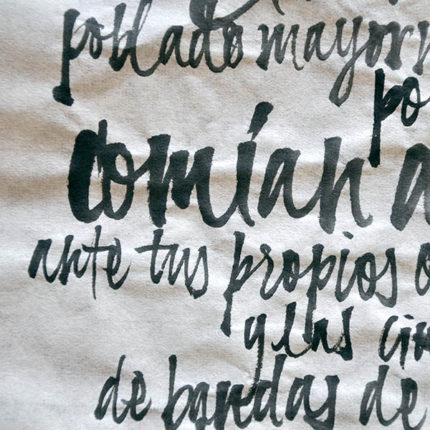 poblado mayorm
po
comían a
ante tus propios o
y las ciu
de bandas de